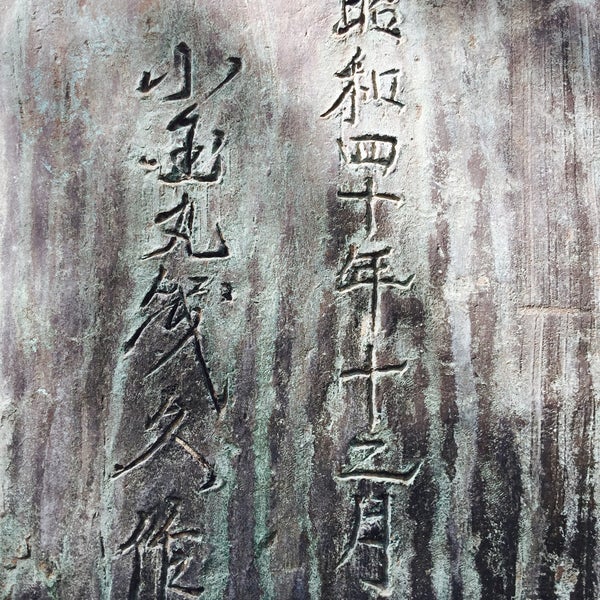 昭和四十年十二月
小金丸幾久作